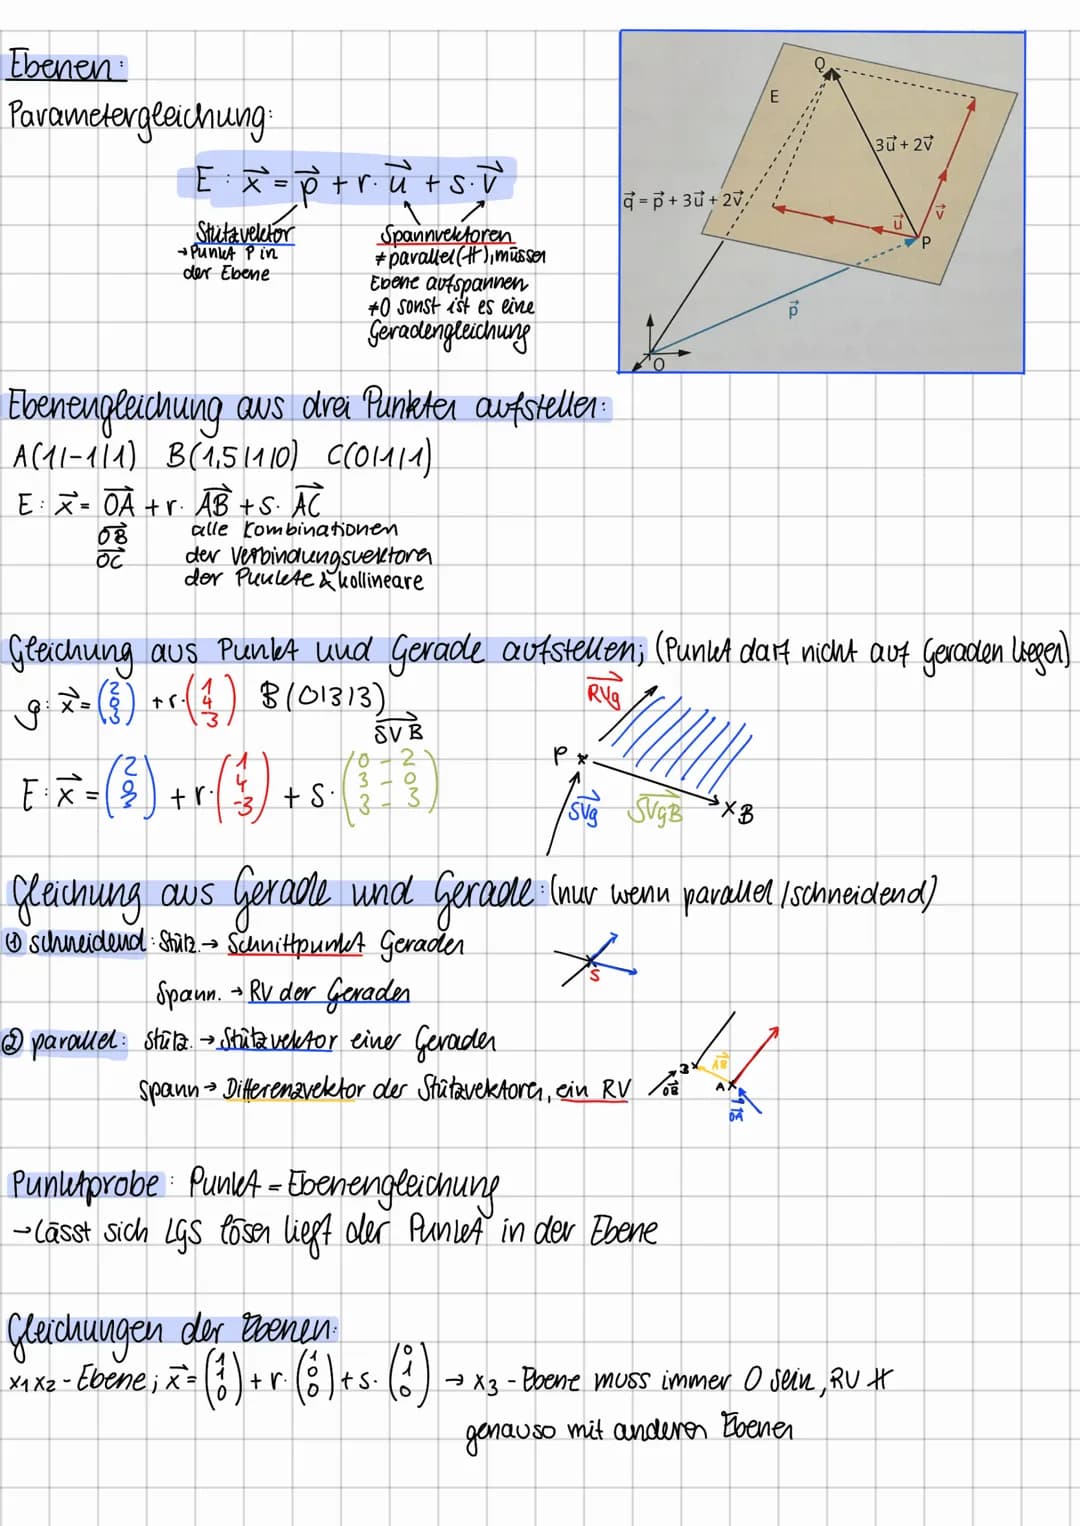 Ebenen:
Parametergleichung:
E : x⃗ = p⃗ + r · u⃗ + s · v⃗
Stützvektor
→ Punkt P in
der Ebene
Spannvektoren
≠ parallel (∦), müssen
Ebene aufspannen
≠0 sonst ist es eine
Geradengleichung
Q
E
3u⃗ + 2v⃗
q⃗ = p⃗ + 3u⃗ + 2v⃗
u⃗
v⃗
P
p⃗
O
Ebenengleichung aus drei Punkten aufstellen:
A(1|-1|1) B(1,5|1|0) C(0|1|1)
E : x⃗ = OA⃗ + r · AB⃗ + s · AC⃗
OB⃗
OC⃗
alle Kombinationen
der Verbindungsvektoren
der Punkte & kollineare
Gleichung aus Punkt und Gerade aufstellen; (Punkt darf nicht auf Geraden liegen)
g: x⃗ = (2 0 3) + r · (1 4 3) B(0|3|3)
SVB⃗
E : x⃗ = (2 0 3) + r · (1 4 -3) + s · (0 - 2 3 - 0 3 - 3)
RVg⃗
P
SVg⃗
SVgB⃗
B
Gleichung aus Gerade und Gerade: (nur wenn parallel / schneidend)
① schneidend: Stütz. → Schnittpunkt Geraden
Spann. → RV der Geraden
S
② parallel: Stütz. → Stützvektor einer Geraden
Spann → Differenzvektor der Stützvektoren, ein RV
B
AB⃗
OB⃗
A
OA⃗
Punktprobe: Punkt = Ebenengleichung
→ Lässt sich LGS lösen liegt der Punkt in der Ebene
Gleichungen der Ebenen:
x1x2 - Ebene; x⃗ = (1 1 0) + r · (1 0 0) + s · (0 1 0) → x3 - Ebene muss immer 0 sein, RV ∦
genauso mit anderen Ebenen